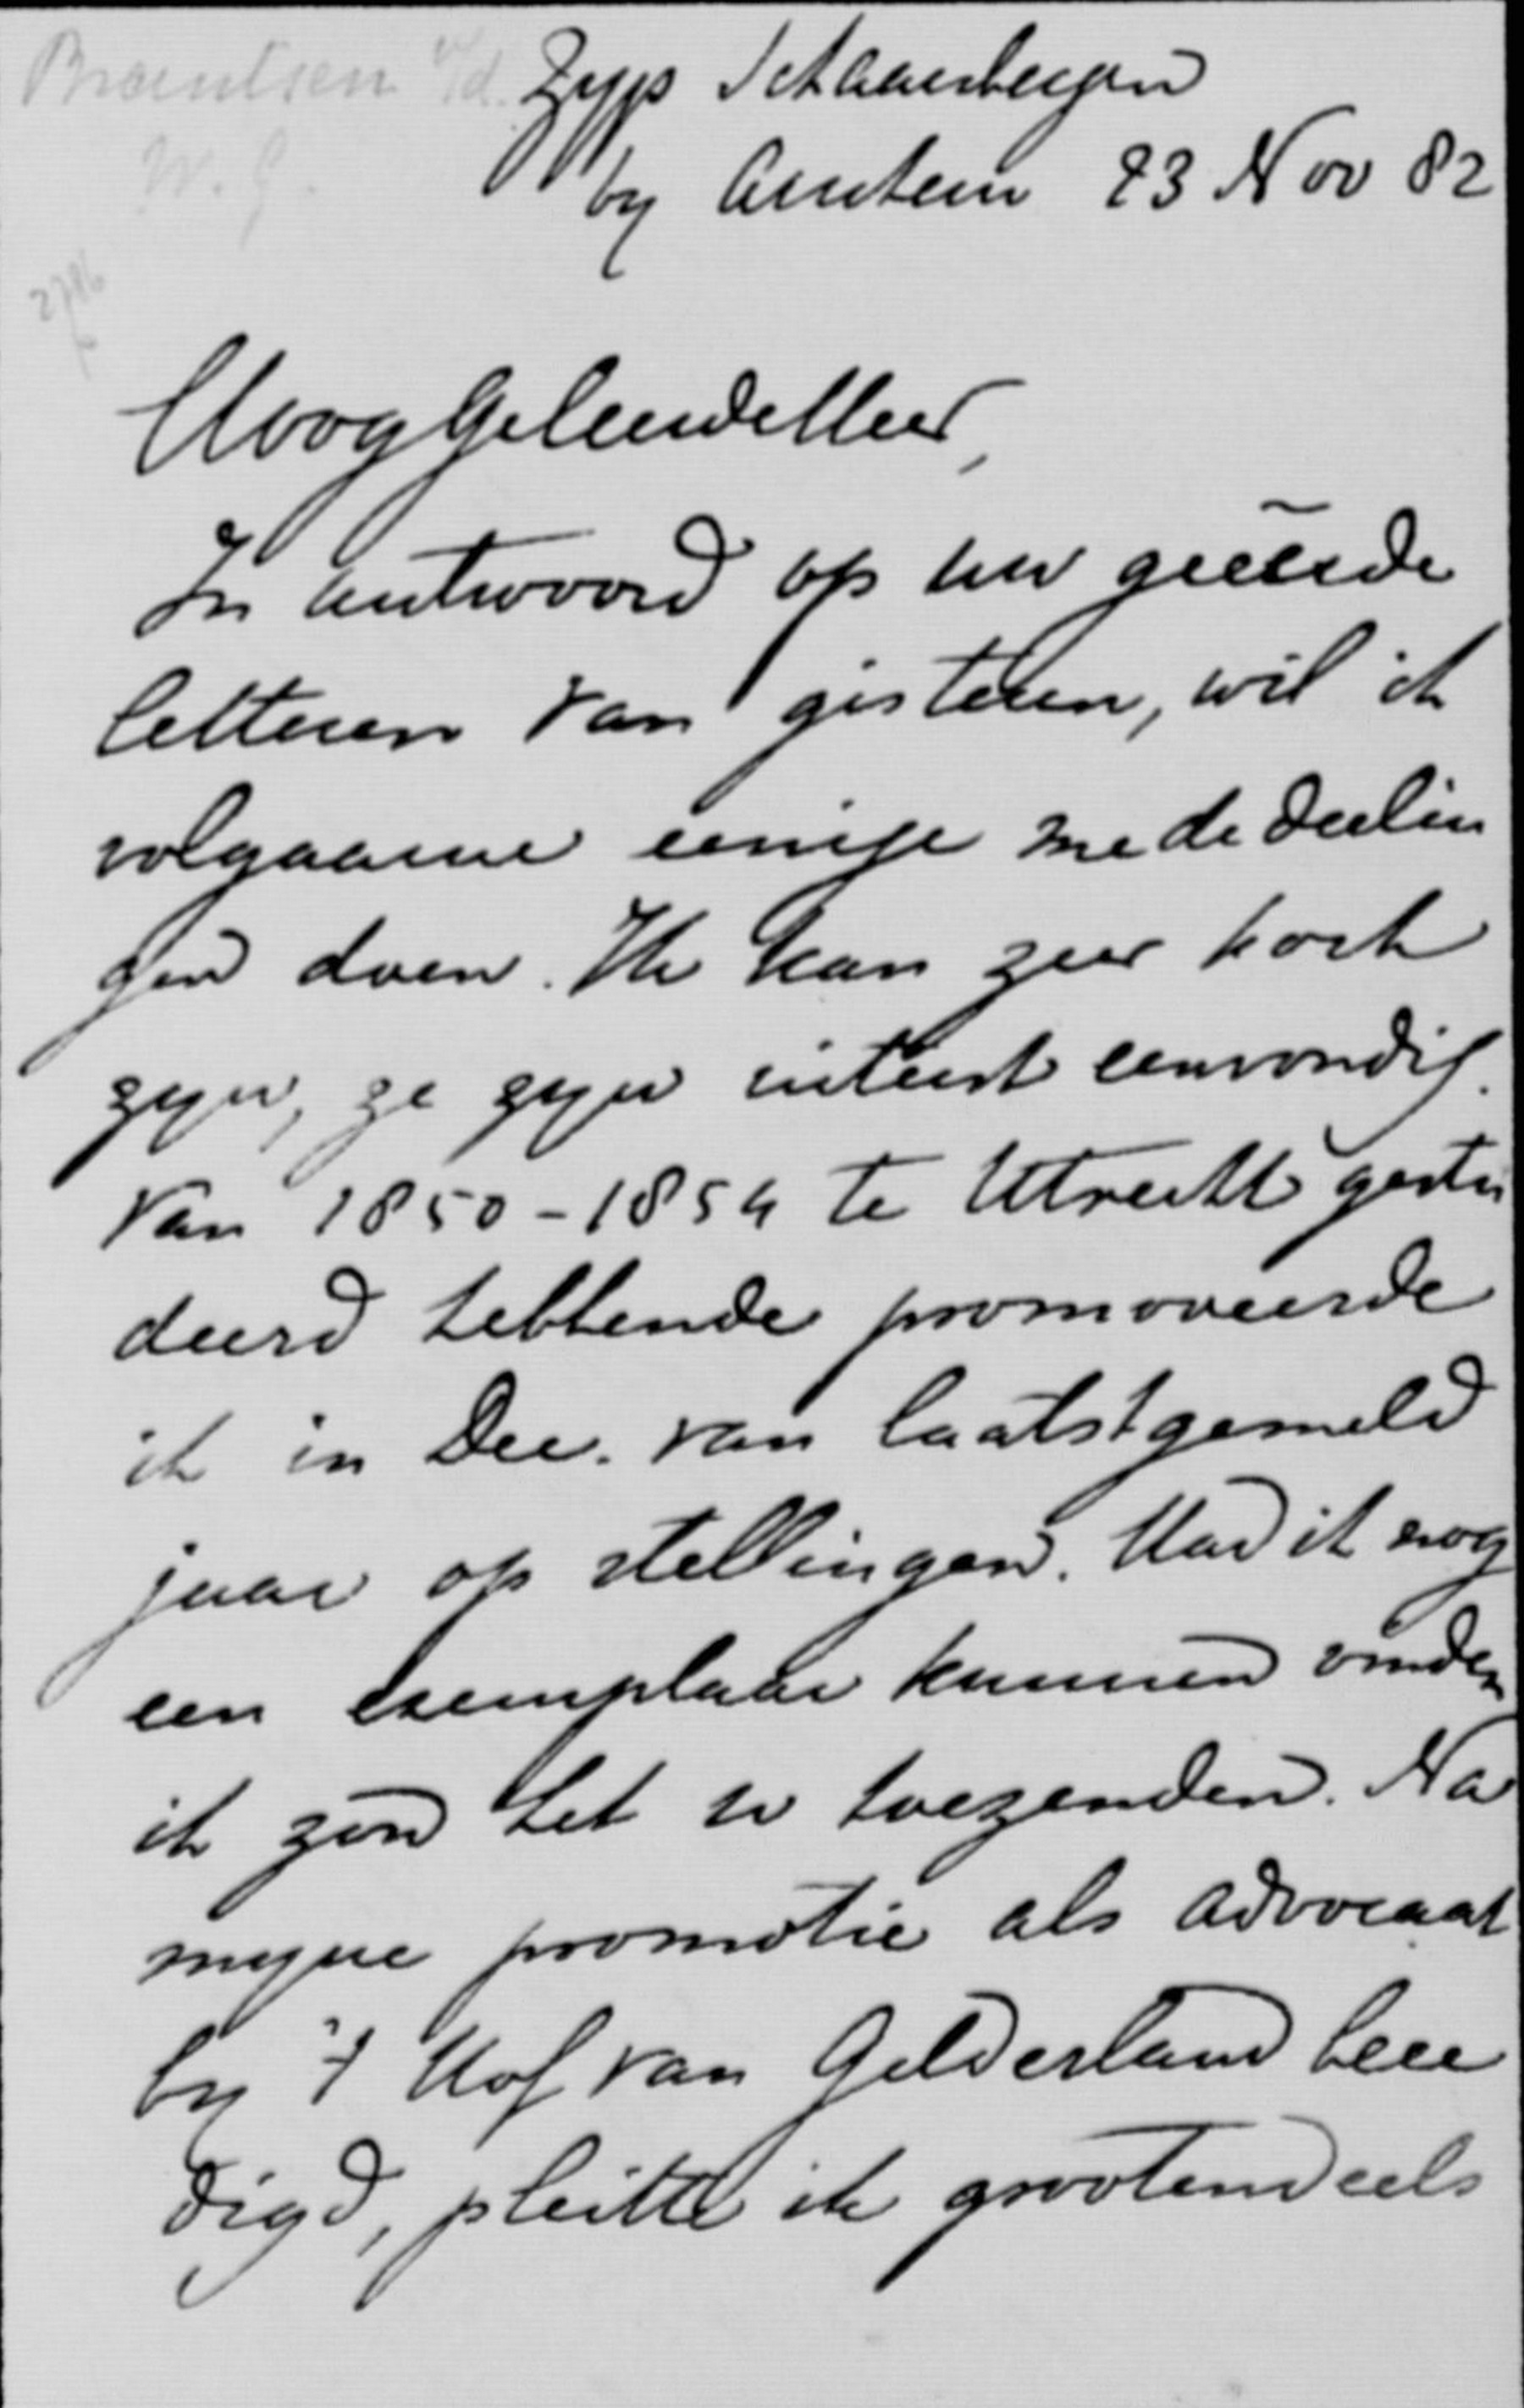 Brantsen v/d. Zyp Schaarsbergen
W. G. by Arnhem 23 Nov 82
HoogGeleerde Heer,
In antwoord op uw geëerde
letteren van gisteren, wil ik
volgaarne eenige mededeelin
gen doen. Ik kan zeer kort
zyn, ze zyn uiterst eenvoudig.
Van 1850-1854 te Utrecht gestu
deerd hebbende promoveerde
ik in Dec. van laatstgemeld
jaar op stellingen. Had ik nog
een exemplaar kunnen vinden
ik zou het u toezenden. Na
myne promotie als advocaat
by 't Hof van Gelderland beee
digd, pleitte ik grootendeels